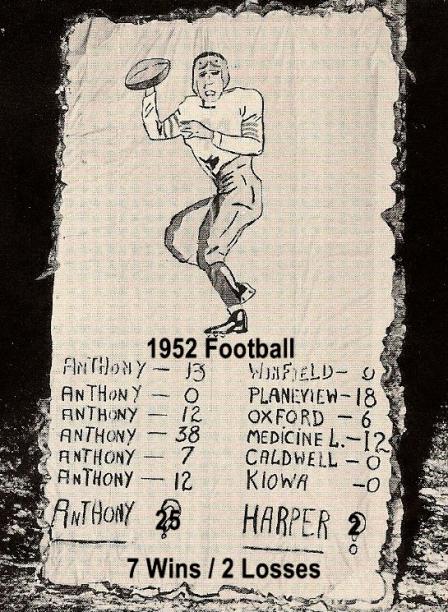 1952 Football
ANTHONY — 13 WINFIELD — 0
ANTHONY — 0 PLANEVIEW — 18
ANTHONY — 12 OXFORD — 6
ANTHONY — 38 MEDICINE L. — 12
ANTHONY — 7 CALDWELL — 0
ANTHONY — 12 KIOWA — 0
ANTHONY 25 HARPER 2
7 Wins / 2 Losses